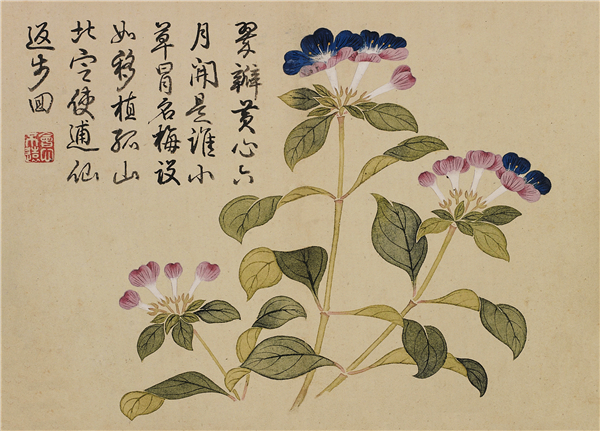 翠瓣黃心六
月開是誰小
草冒名梅設
如移植孤山
北定使逋仙
返步回